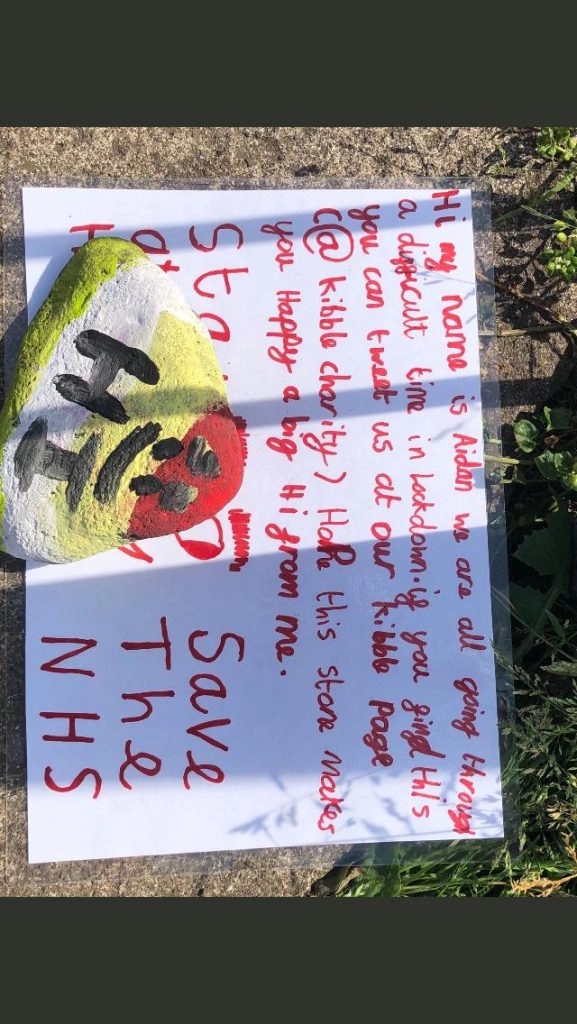 Hi my name is Aidan we are all going through
a difficult time in Lockdown. if you find this
you can tweet us at our kibble page
(@ kibble charity) Hope this stone makes
you Happy a big Hi from me.
Sta
at
Save
The
NHS
HI